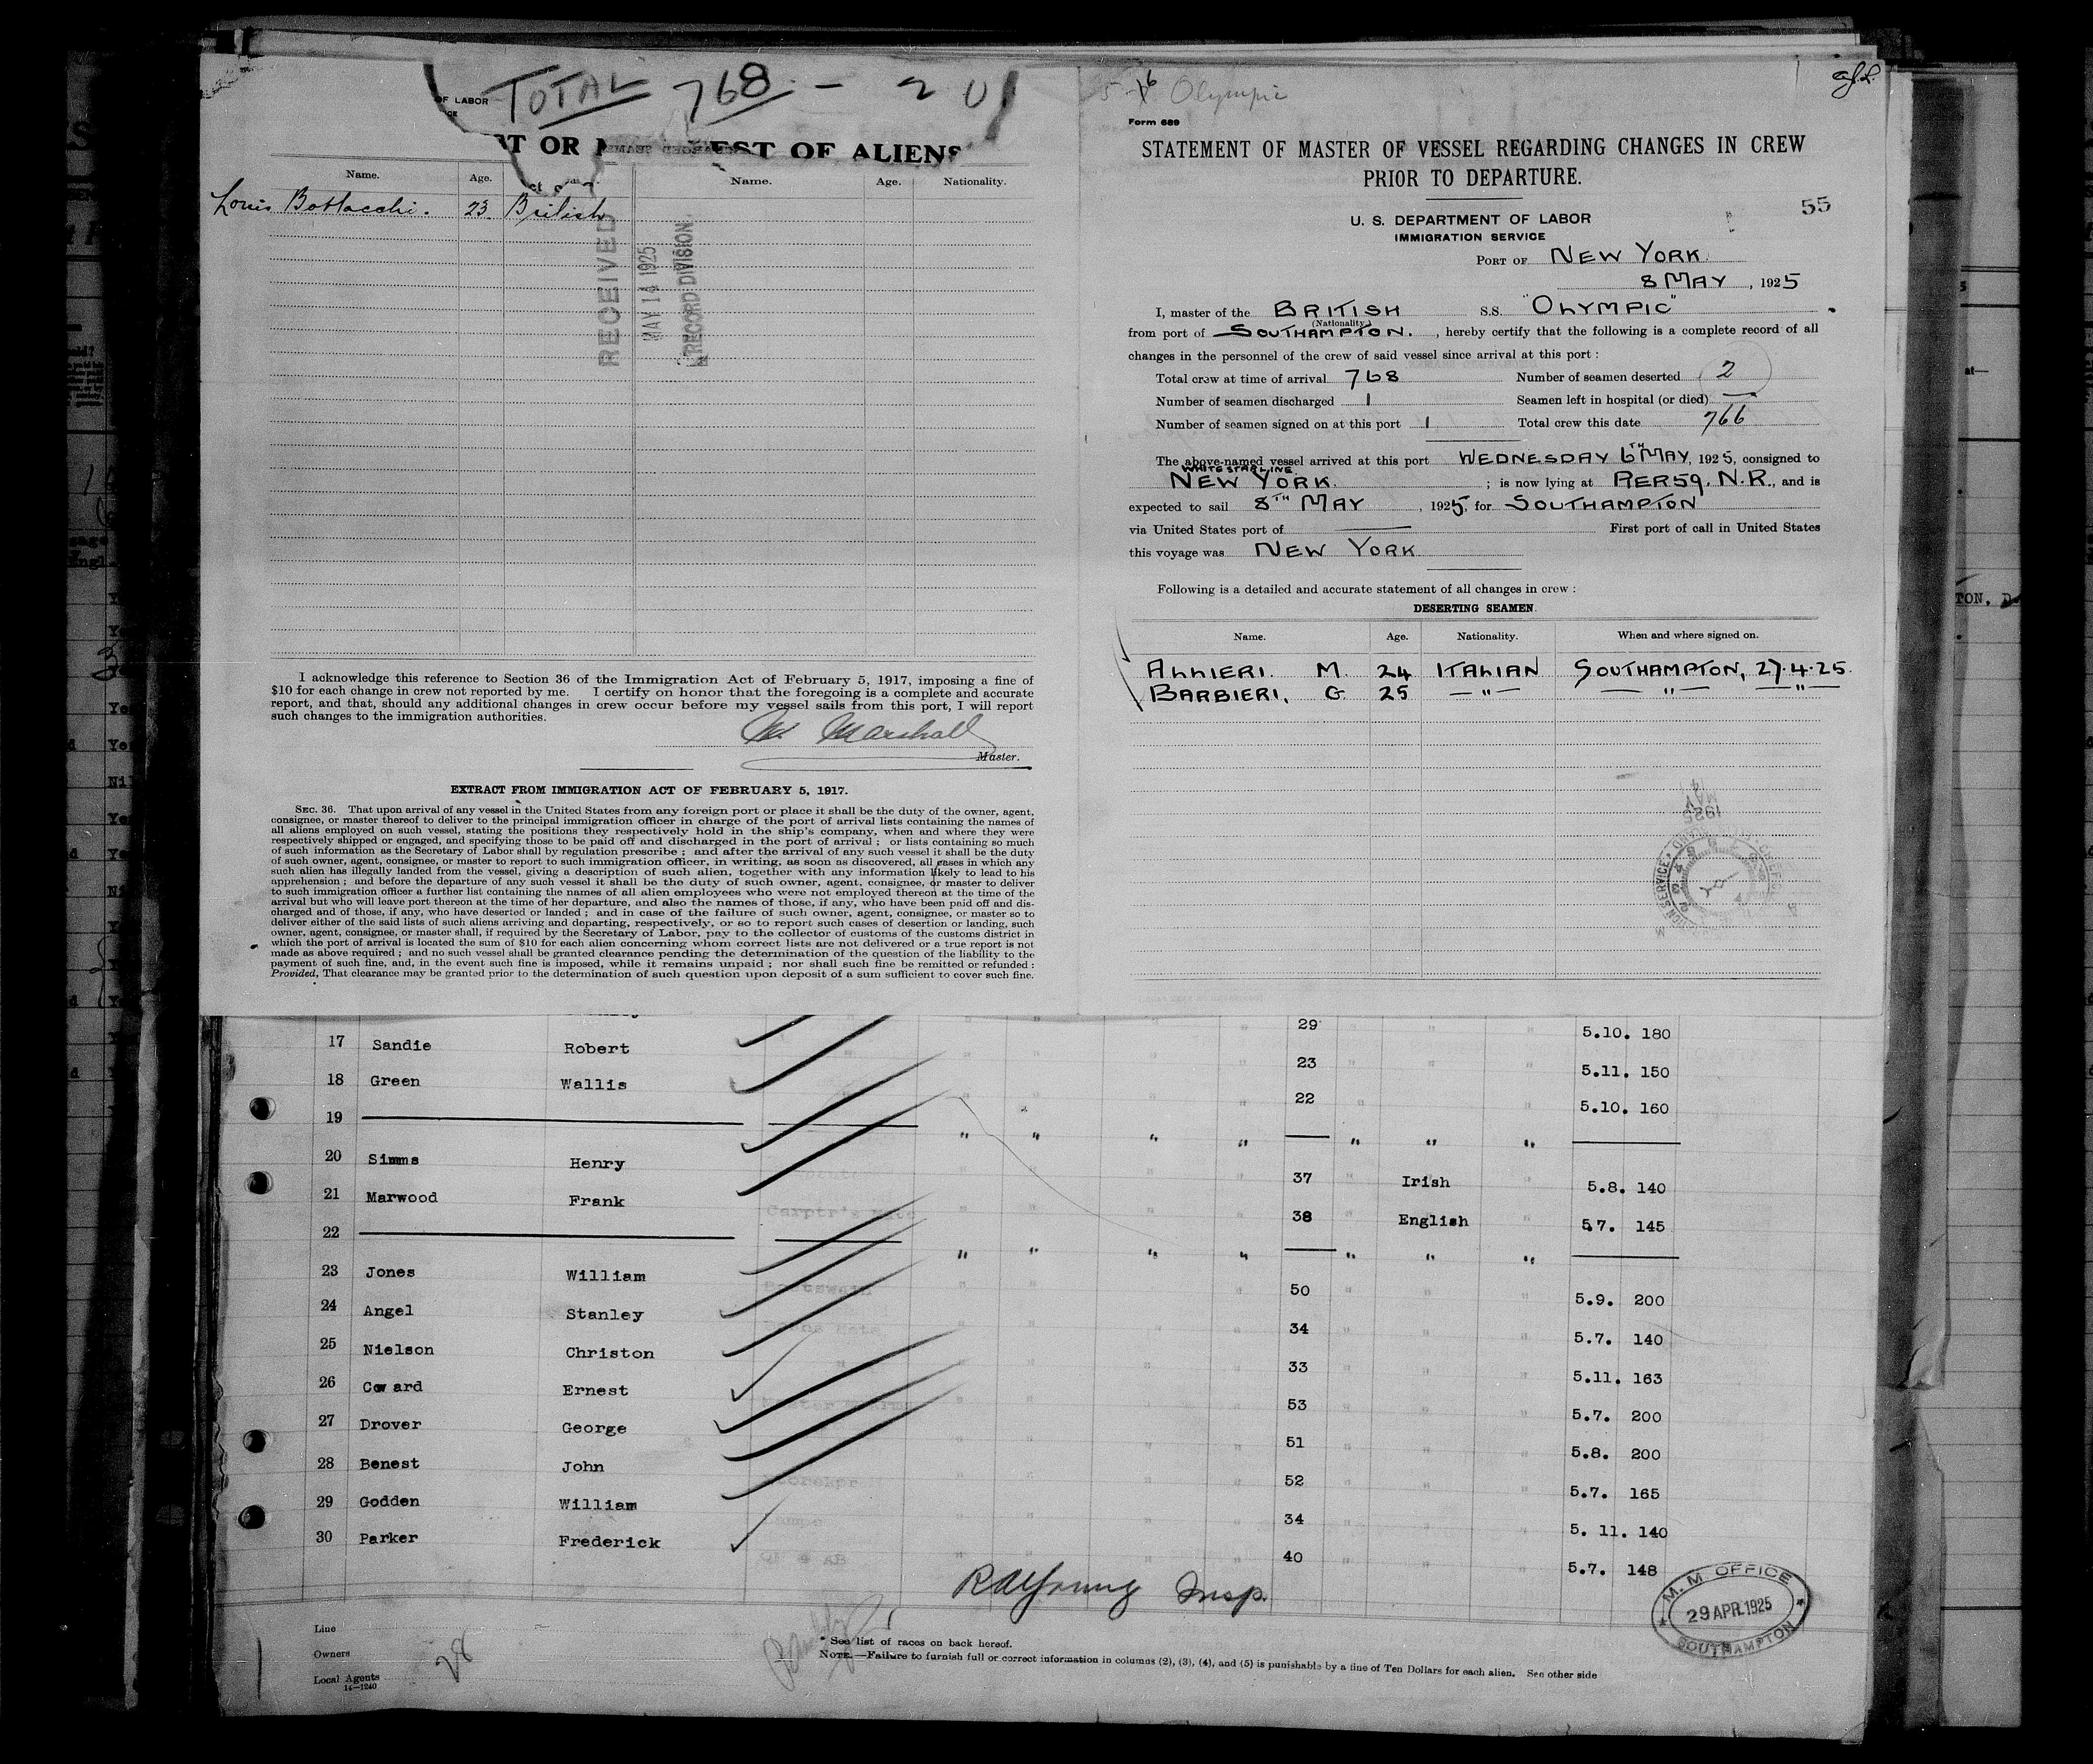 TOTAL 768 - 2 U
OF LABOR
OR
EST OF ALIENS
Name. Age. Name. Age. Nationality.
Louis Bottacchi. 23 British
RECEIVED
MAY 14 1925
RECORD DIVISION
I acknowledge this reference to Section 36 of the Immigration Act of February 5, 1917, imposing a fine of
$10 for each change in crew not reported by me. I certify on honor that the foregoing is a complete and accurate
report, and that, should any additional changes in crew occur before my vessel sails from this port, I will report
such changes to the immigration authorities.
W. Marshall
Master.
EXTRACT FROM IMMIGRATION ACT OF FEBRUARY 5, 1917.
SEC. 36. That upon arrival of any vessel in the United States from any foreign port or place it shall be the duty of the owner, agent,
consignee, or master thereof to deliver to the principal immigration officer in charge of the port of arrival lists containing the names of
all aliens employed on such vessel, stating the positions they respectively hold in the ship's company, when and where they were
respectively shipped or engaged, and specifying those to be paid off and discharged in the port of arrival ; or lists containing so much
of such information as the Secretary of Labor shall by regulation prescribe ; and after the arrival of any such vessel it shall be the duty
of such owner, agent, consignee, or master to report to such immigration officer, in writing, as soon as discovered, all cases in which any
such alien has illegally landed from the vessel, giving a description of such alien, together with any information likely to lead to his
apprehension ; and before the departure of any such vessel it shall be the duty of such owner, agent, consignee, or master to deliver
to such immigration officer a further list containing the names of all alien employees who were not employed thereon at the time of the
arrival but who will leave port thereon at the time of her departure, and also the names of those, if any, who have been paid off and dis-
charged and of those, if any, who have deserted or landed ; and in case of the failure of such owner, agent, consignee, or master so to
deliver either of the said lists of such aliens arriving and departing, respectively, or so to report such cases of desertion or landing, such
owner, agent, consignee, or master shall, if required by the Secretary of Labor, pay to the collector of customs of the customs district in
which the port of arrival is located the sum of $10 for each alien concerning whom correct lists are not delivered or a true report is not
made as above required ; and no such vessel shall be granted clearance pending the determination of the question of the liability to the
payment of such fine, and, in the event such fine is imposed, while it remains unpaid ; nor shall such fine be remitted or refunded :
Provided, That clearance may be granted prior to the determination of such question upon deposit of a sum sufficient to cover such fine.
Olympic
Form 689
STATEMENT OF MASTER OF VESSEL REGARDING CHANGES IN CREW
PRIOR TO DEPARTURE.
55
U. S. DEPARTMENT OF LABOR
IMMIGRATION SERVICE
PORT OF NEW YORK.
8 MAY, 1925
I, master of the BRITISH S.S. "OLYMPIC"
(Nationality)
from port of SOUTHAMPTON., hereby certify that the following is a complete record of all
changes in the personnel of the crew of said vessel since arrival at this port :
Total crew at time of arrival 768 Number of seamen deserted 2
Number of seamen discharged 1 Seamen left in hospital (or died) —
Number of seamen signed on at this port 1 Total crew this date 766
The above-named vessel arrived at this port WEDNESDAY 6TH MAY, 1925, consigned to
WHITE STAR LINE
NEW YORK. ; is now lying at PIER 59. N.R., and is
expected to sail 8TH MAY, 1925, for SOUTHAMPTON
via United States port of — First port of call in United States
this voyage was NEW YORK
Following is a detailed and accurate statement of all changes in crew :
DESERTING SEAMEN.
Name. Age. Nationality. When and where signed on.
ALLIERI. M. 24 ITALIAN SOUTHAMPTON, 27.4.25.
BARBIERI, G. 25 — " — — " — — " —
MAY 14
1925
17 Sandie Robert 29 " " 5.10. 180
18 Green Wallis 23 " " 5.11. 150
19 22 " " 5.10. 160
" " " " " " "
20 Simms Henry 37 " Irish " 5.8. 140
21 Marwood Frank Carptr's Mate 38 " English " 5.7. 145
22 " " " " " " "
23 Jones William Boatswain 50 " " 5.9. 200
24 Angel Stanley 34 " " 5.7. 140
25 Nielson Christon 33 " " 5.11. 163
26 Coward Ernest 53 " " 5.7. 200
27 Drover George 51 " " 5.8. 200
28 Benest John 52 " " 5.7. 165
29 Godden William 34 " " 5. 11. 140
30 Parker Frederick 40 " " 5.7. 148
Insp.
M. M. OFFICE
29 APR. 1925
SOUTHAMPTON
Line
Owners
Local Agents
14—1240
28
* See list of races on back hereof.
NOTE.—Failure to furnish full or correct information in columns (2), (3), (4), and (5) is punishable by a fine of Ten Dollars for each alien. See other side
TON, D.